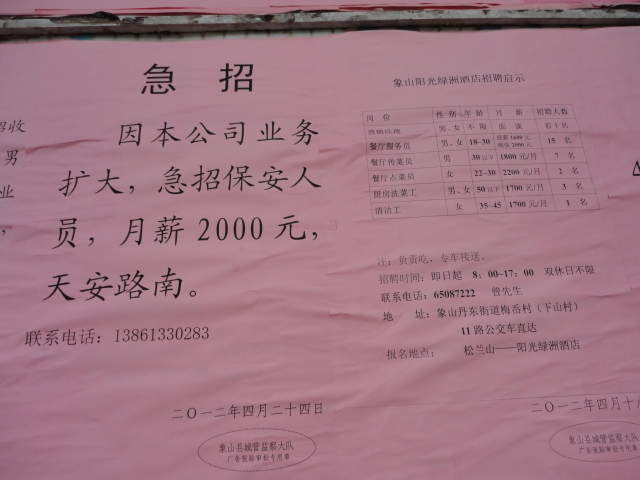 招收
男
业
，
急 招
因本公司业务
扩大，急招保安人
员，月薪 2000 元，
天安路南。
联系电话：13861330283
二〇一二年四月二十四日
象山县城管监察大队
广告张贴审批专用章
象山阳光绿洲酒店招聘启示
岗 位 性 别 年 龄 月 薪 招聘人数
营销经理 男、女 不 限 面 谈 若干名
餐厅服务员 男、女 18-30 15 名
餐厅传菜员 男 30 以下 1800 元/月 7 名
餐厅点菜员 女 22-30 2200 元/月 2 名
厨房洗菜工 男、女 50 以下 1700 元/月 3 名
清洁工 女 35-45 1700 元/月 1 名
注：负责吃，专车接送。
招聘时间：即日起 8：00-17：00 双休日不限
联系电话：65087222 曾先生
地 址：象山丹东街道梅岙村（下山村）
11 路公交车直达
报名地点： 松兰山——阳光绿洲酒店
二〇一二年四月十八
象山县城管监察大队
广告张贴审批专用章